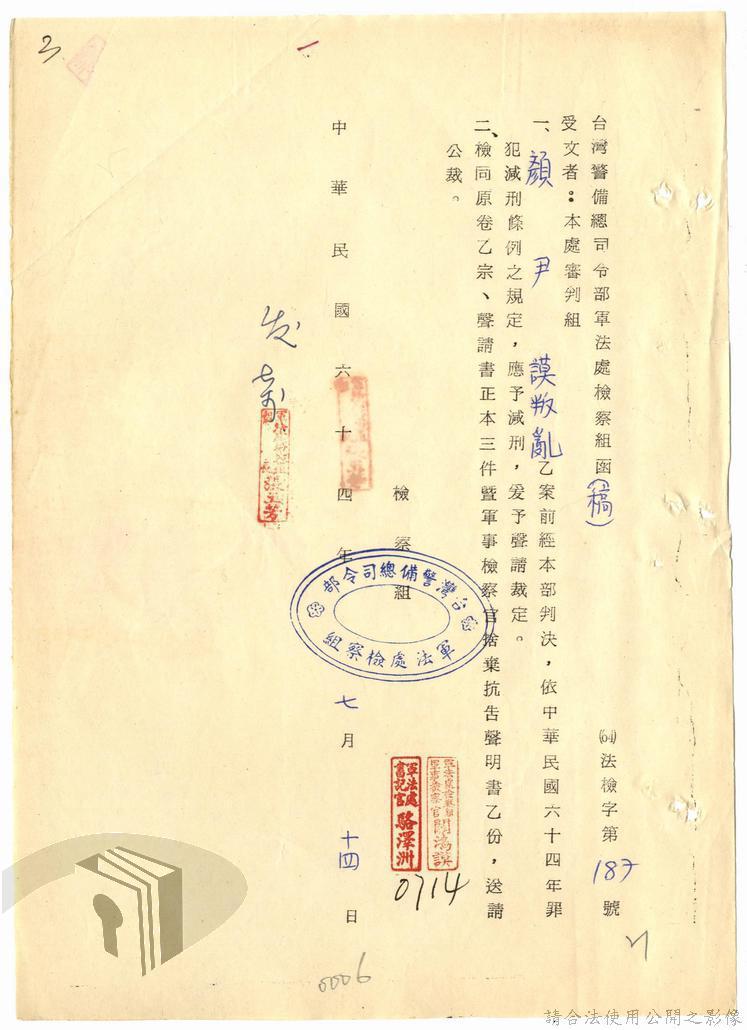 台灣警備總司令部軍法處檢察組函(稿)
(64)法檢字第187號
受文者：本處審判組
一、顏尹謨叛亂乙案前經本部判決，依中華民國六十四年罪
犯減刑條例之規定，應予減刑，爰予聲請裁定。
二、檢同原卷乙宗、聲請書正本三件暨軍事檢察官捨棄抗告聲明書乙份，送請
公裁。
檢察組
台灣警備總司令部
軍法處檢察組
軍法處
書記官
駱澤洲
0714
中華民國六十四年七月十四日
0006
請合法使用公開之影像